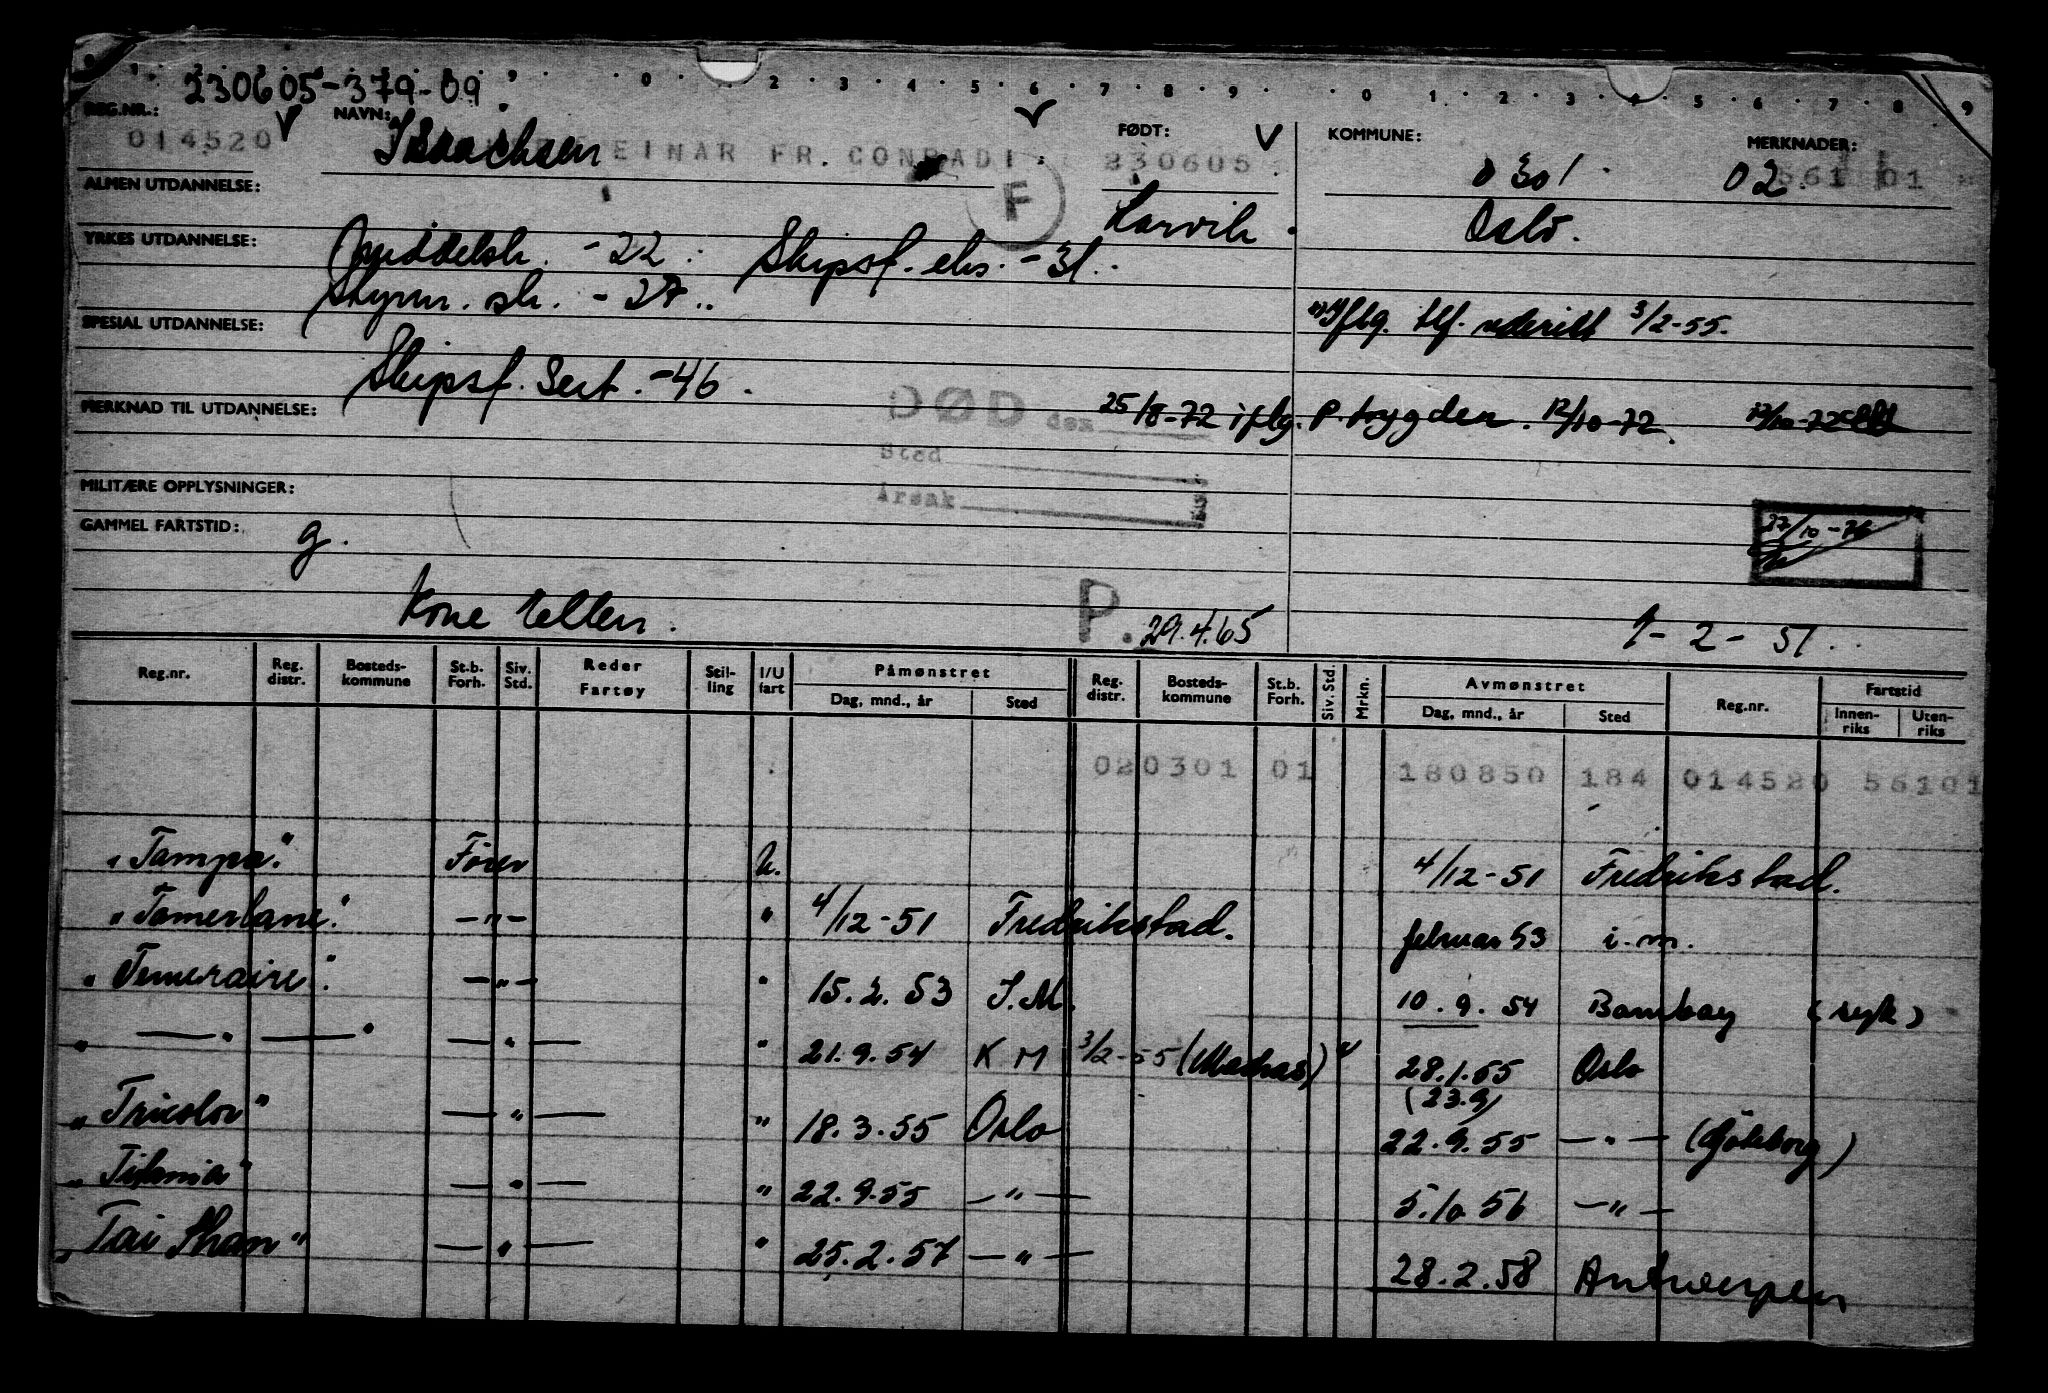 230605-379-09
REG.NR.: NAVN: FØDT: KOMMUNE: MERKNADER:
014520 Isaachsen EINAR FR. CONRADI 230605 0301 02 561 01
ALMEN UTDANNELSE: F Larvik Oslo.
YRKES UTDANNELSE: Middelsk. -22 Skipsf. eks. -31.
Styrm. sk. -27.
SPESIAL UTDANNELSE: iflg. tlf. rederiet 3/2-55.
Skipsf. Sert. -46.
MERKNAD TIL UTDANNELSE: DØD den 25/8-72 iflg. P.trygden. 12/10-72
Sted
Årsak
MILITÆRE OPPLYSNINGER:
GAMMEL FARTSTID: g. 27/10-76
Kone Ellen. P. 29.4.65 1-2-51.
Reg.nr. Reg. distr. Bosteds-kommune St.b. Forh. Siv. Std. Reder Fartøy Stil-ling I/U fart Påmønstret Reg. distr. Bosteds-kommune St.b. Forh. Siv. Std. Mrkn. Avmønstret Reg.nr. Fartstid
Dag, mnd., år Sted Dag, mnd., år Sted Innen-riks Uten-riks
020301 01 180850 184 014520 56101
"Tampa" Fører U. 4/12-51 Fredrikstad.
"Tamerlane" -"- " 4/12-51 Fredrikstad. februar 53 i.m.
"Temeraire" -"- " 15.2.53 I.M. 10.9.54 Bombay (syk)
" — " — " — " — " 21.9.54 K M 3/2-55 (Madras) 28.1.55 Oslo
(23.9)
"Tricolor" — " — " 18.3.55 Oslo 22.9.55 — " — (Göteborg)
"Titania" — " — " 22.9.55 — " — 5.10 56 — " —
"Tai Shan" — " — " 25.2.57 — " — 28.2.58 Antwerpen